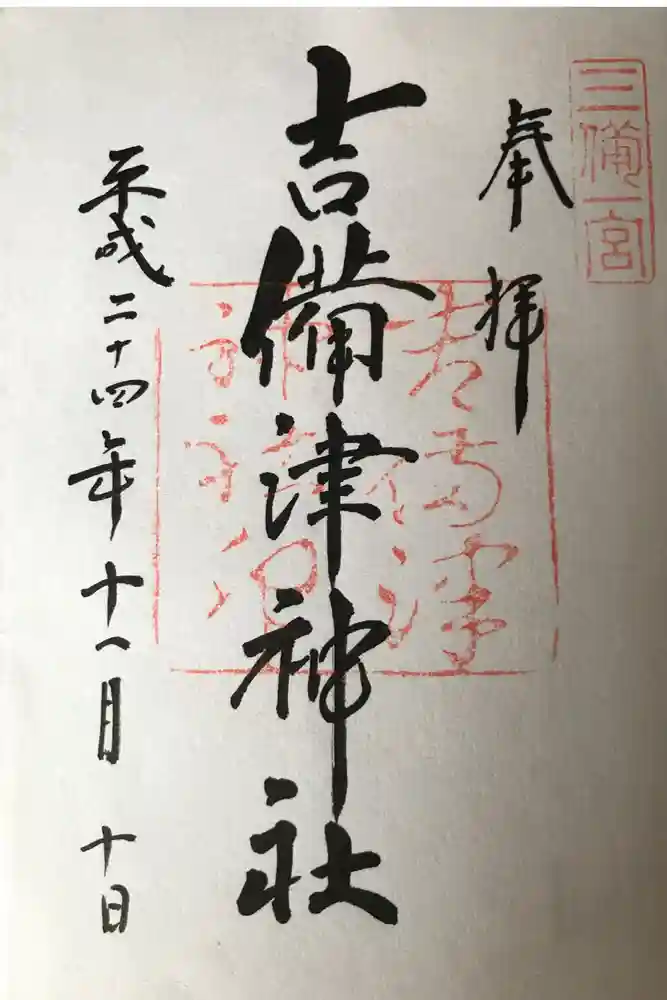 三備一宮
奉拝
吉備津神社
平成二十四年十一月十日